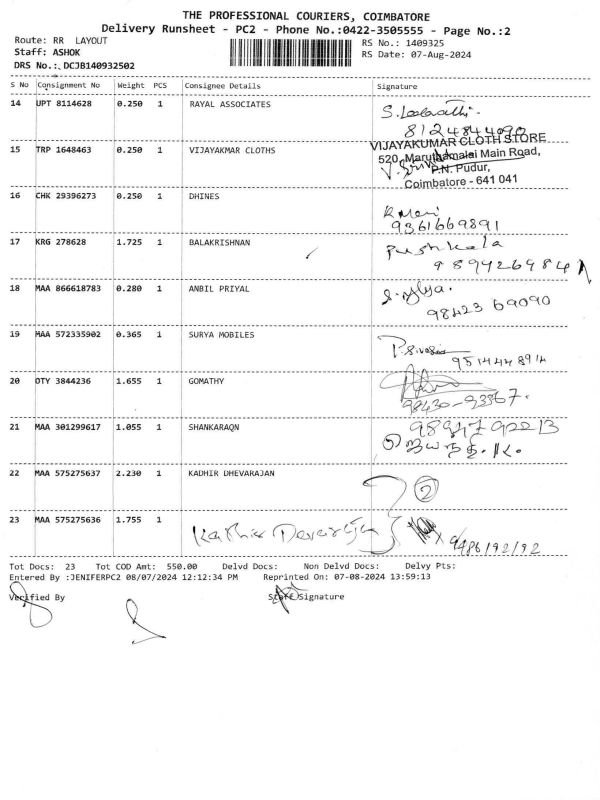 THE PROFESSIONAL COURIERS, COIMBATORE
Delivery Runsheet - PC2 - Phone No.:0422-3505555 - Page No.:2
Route: RR LAYOUT
RS No.: 1409325
Staff: ASHOK
RS Date: 07-Aug-2024
DRS No.: DCJB140932502
S No Consignment No Weight PCS Consignee Details Signature
14 UPT 8114628 0.250 1 RAYAL ASSOCIATES
8124844090
15 TRP 1648463 0.250 1 VIJAYAKMAR CLOTHS
VIJAYAKUMAR CLOTH STORE
520, Maruthamalai Main Road,
P.N. Pudur,
Coimbatore - 641 041
16 CHK 29396273 0.250 1 DHINES
R Mani
9361669891
17 KRG 278628 1.725 1 BALAKRISHNAN
Pushkala
9894269841
18 MAA 866618783 0.280 1 ANBIL PRIYAL
98423 69090
19 MAA 572335902 0.365 1 SURYA MOBILES
9514448914
20 OTY 3844236 1.655 1 GOMATHY
98430-93367.
21 MAA 301299617 1.055 1 SHANKARAQN
22 MAA 575275637 2.230 1 KADHIR DHEVARAJAN
2
23 MAA 575275636 1.755 1
Kathir Devaraja
9486192192
Tot Docs: 23 Tot COD Amt: 550.00 Delvd Docs: Non Delvd Docs: Delvy Pts:
Entered By :JENIFERPC2 08/07/2024 12:12:34 PM Reprinted On: 07-08-2024 13:59:13
Verified By Staff Signature